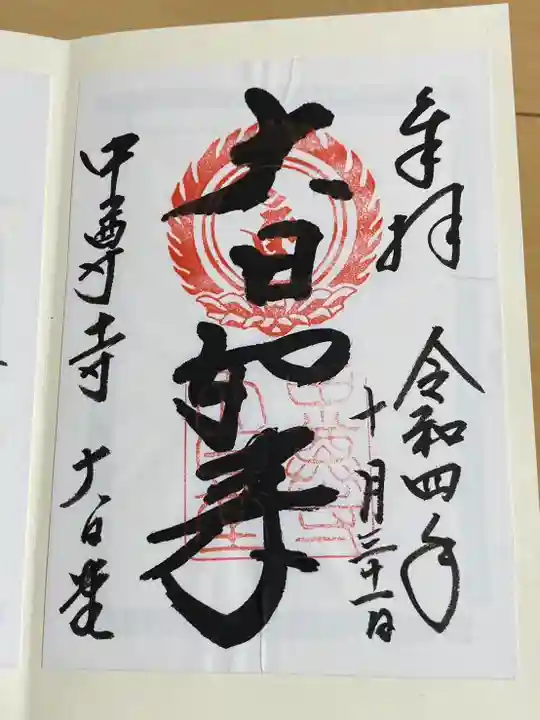 奉拝
令和四年
十月三十一日
大日如来
中尊寺 大日堂